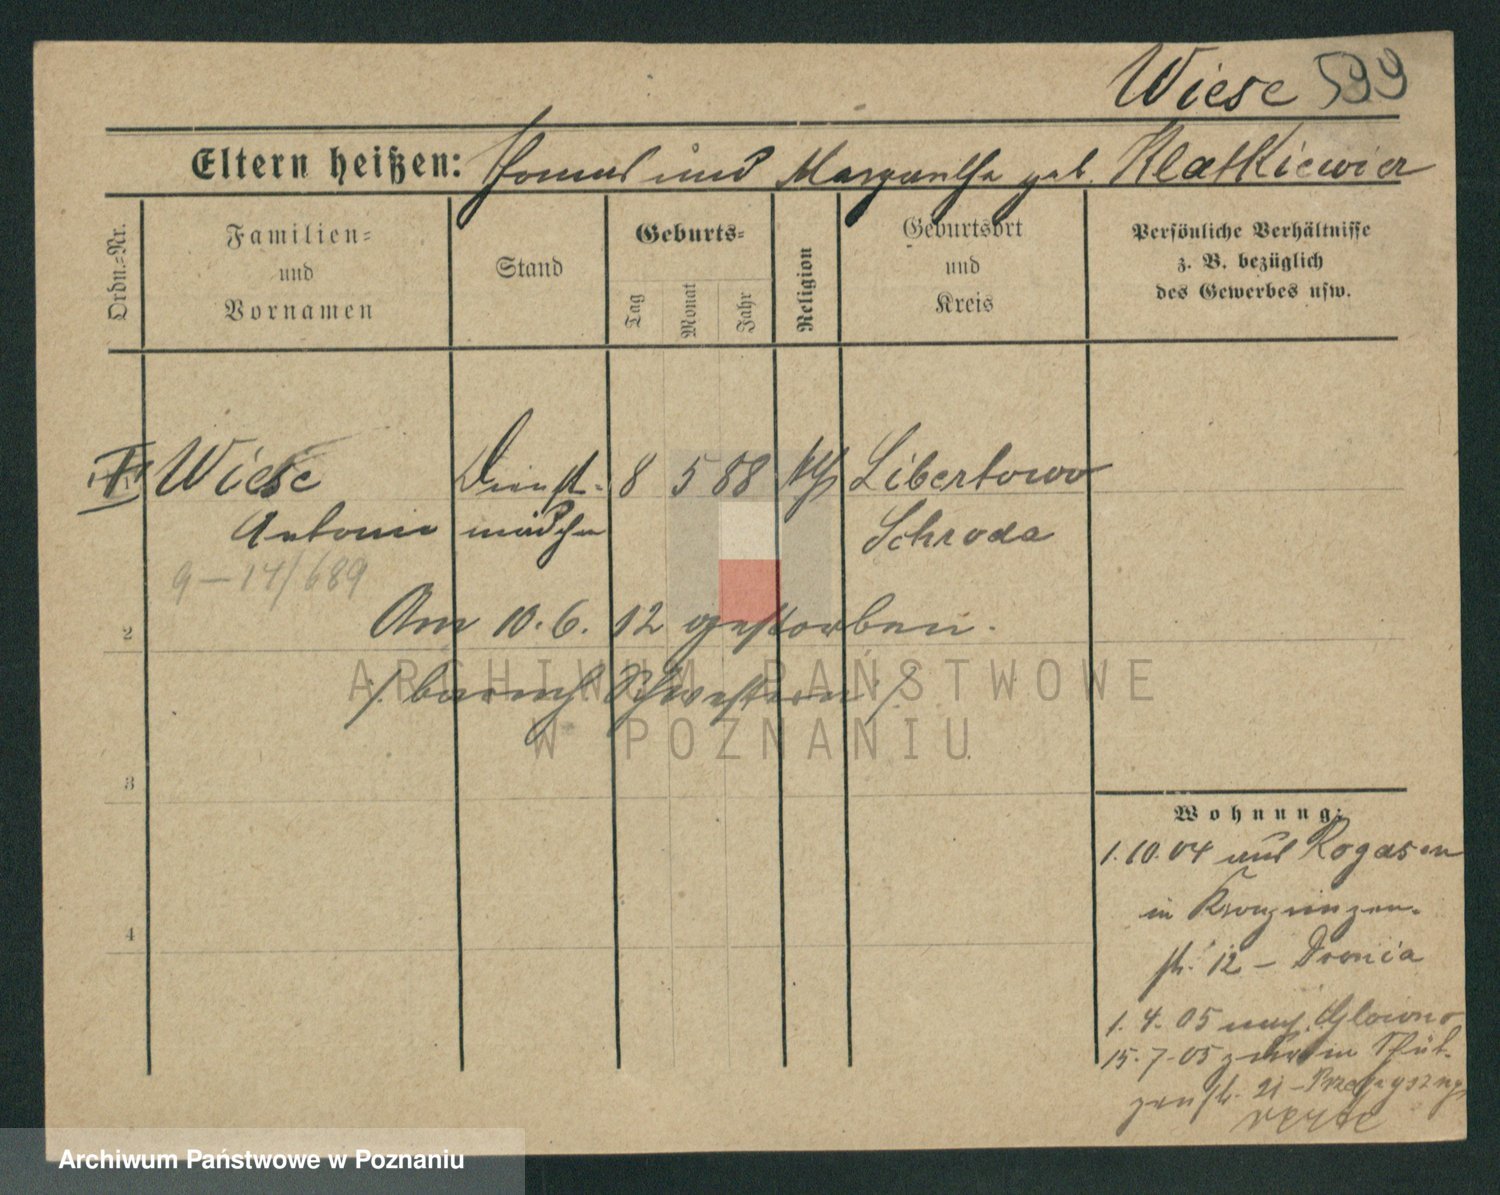 Wiese 599
Eltern heißen: Thomas und Margaretha geb. Klatkiewicz
Ordn.-Nr.
Familien-
und
Vornamen
Stand
Geburts-
Tag
Monat
Jahr
Religion
Geburtsort
und
Kreis
Persönliche Verhältnisse
z. B. bezüglich
des Gewerbes usw.
Wiese Dienst- 8 5 88 Libertowo
Antonie mädchen Schroda
9-14/689
2
Am 10.6.12 gestorben.
/. barmh. Schwestern /
ARCHIWUM PAŃSTWOWE
W POZNANIU
3
Wohnung:
1.10.04 aus Rogasen
in
4
str. 12 -
1.4.05 nach Glowno
15.7.05 in Schüt-
zenstr. 21 -
verte
Archiwum Państwowe w Poznaniu